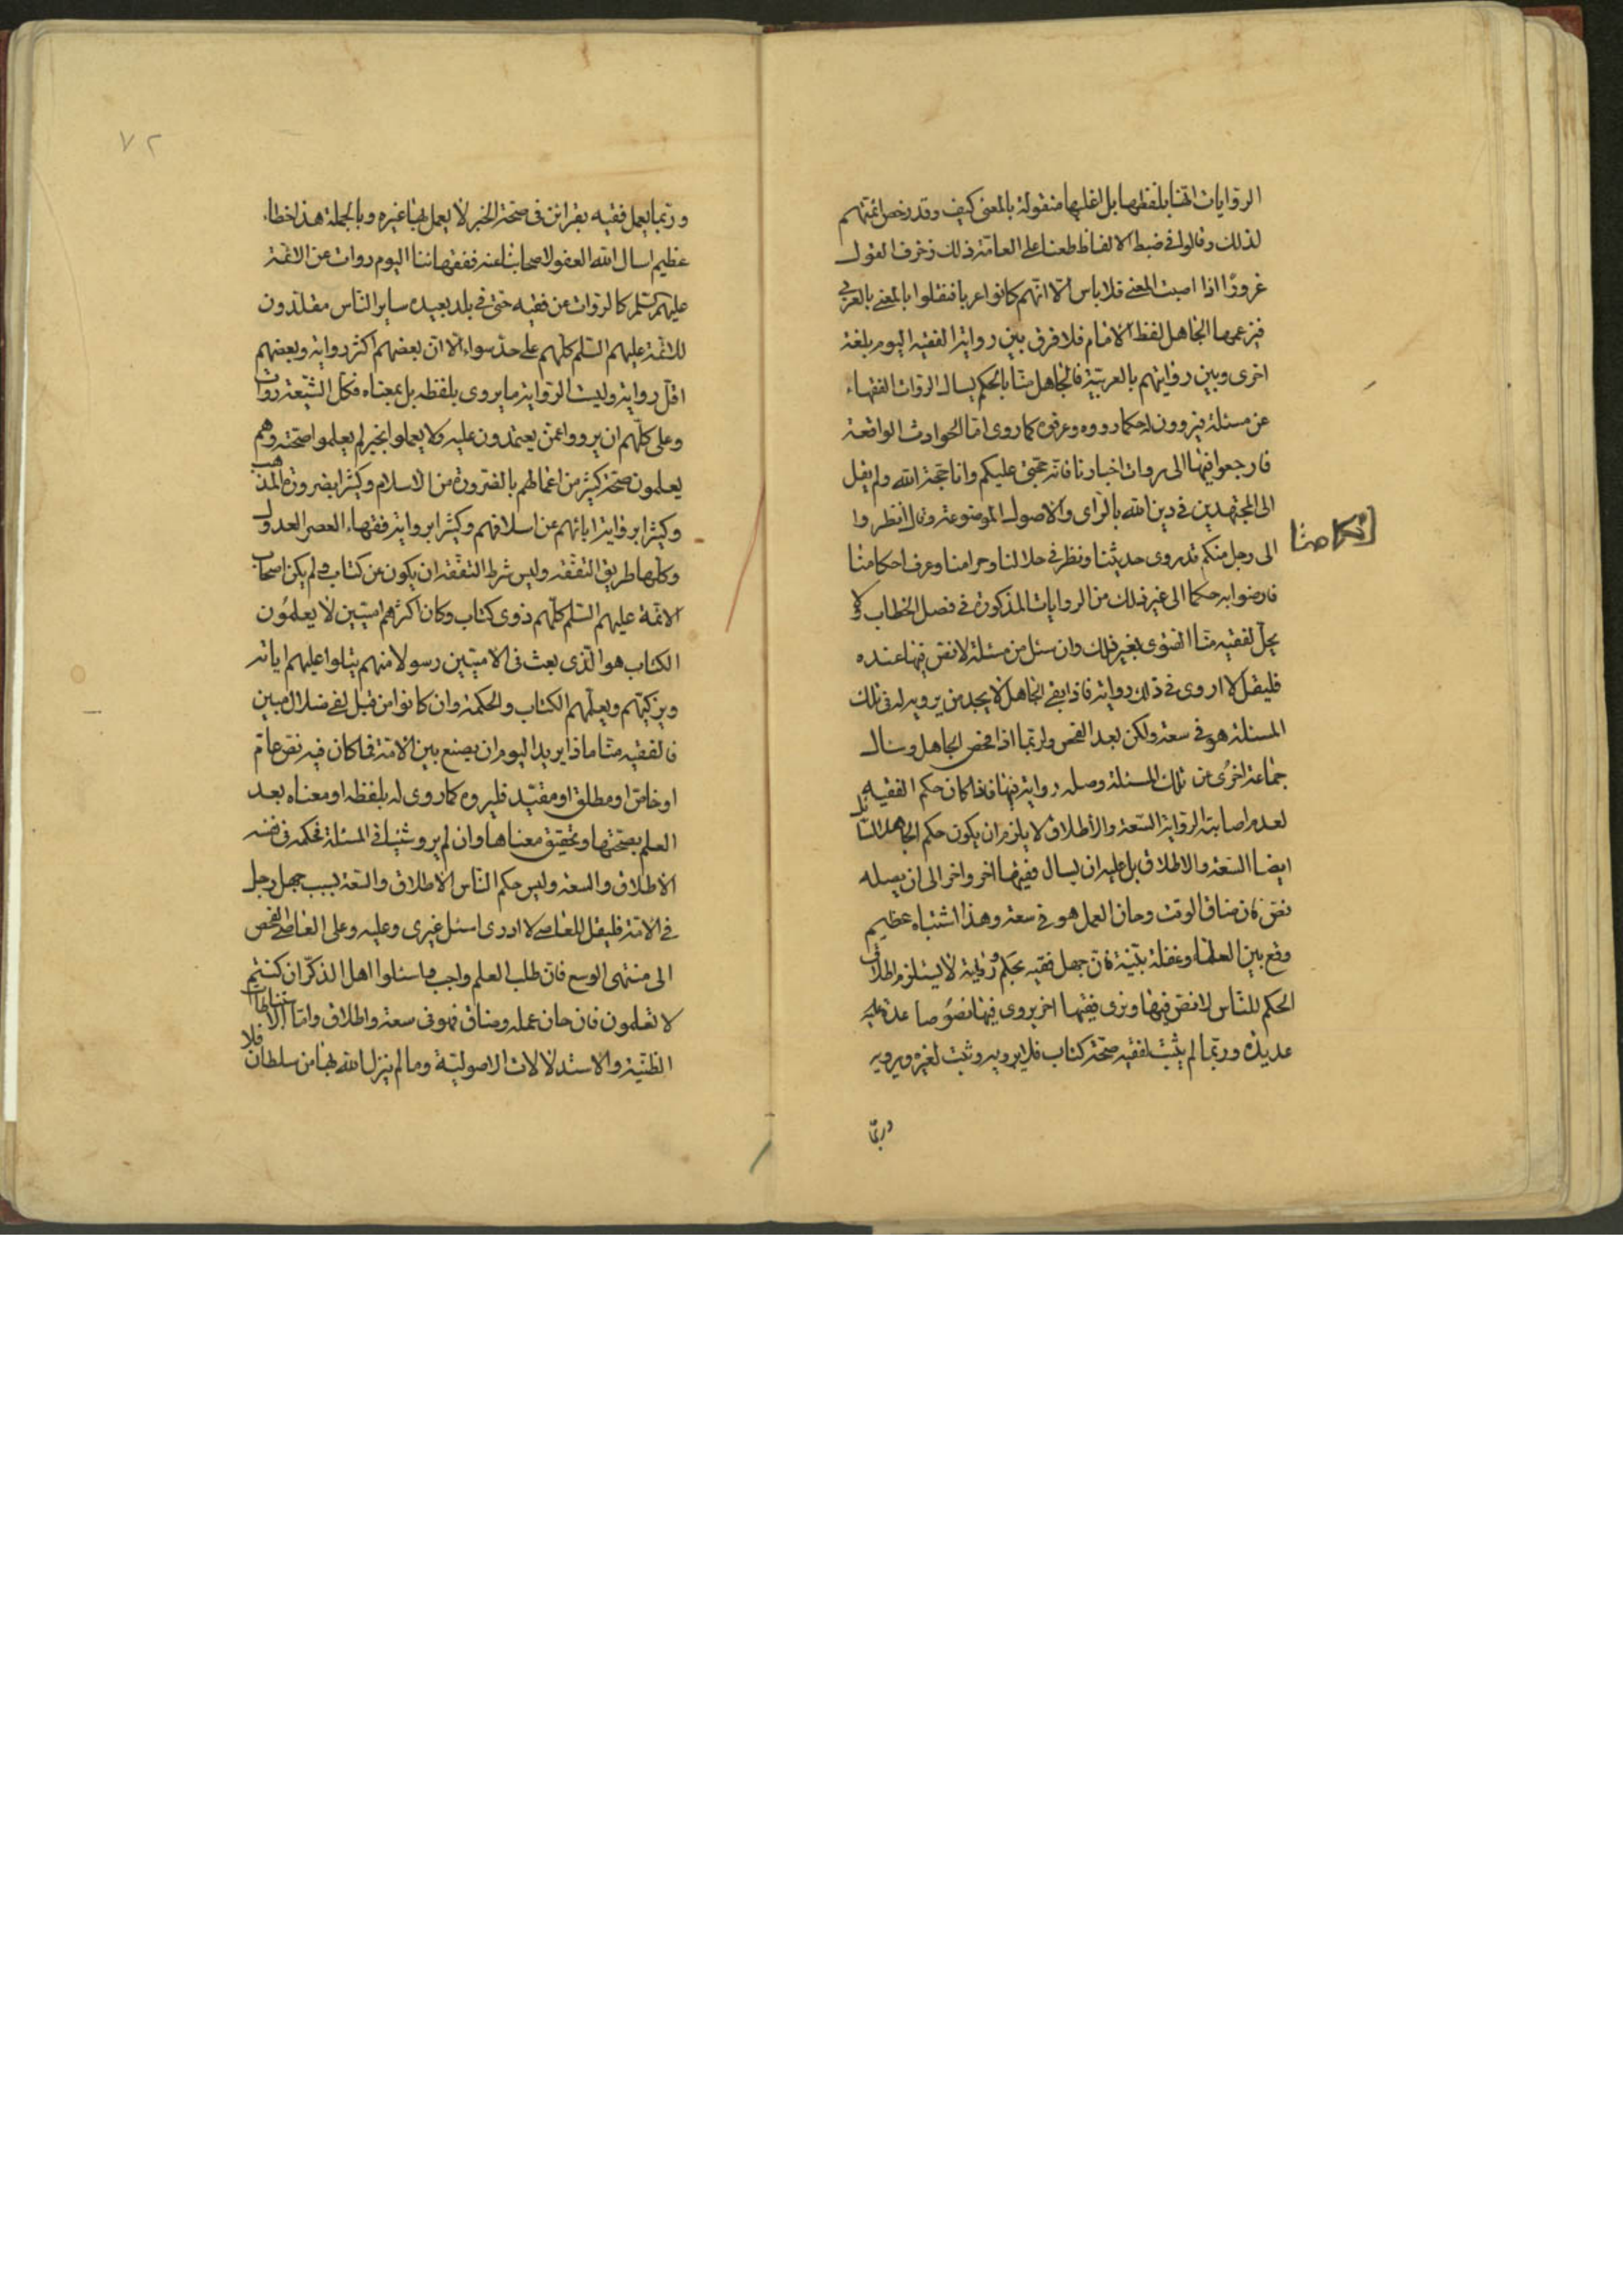 الروايات اتتنا بلفظها بل اغلبها منقولة بالمعنى كيف وقد رخص ائمتهم
لذلك وقالوا في ضبط الالفاظ طعنا على العامة ذلك زخرف القول
غرورًا اذا اصبت المعنى فلا باس الا انهم كانوا عربا فنقلوا بالمعنى بالعربي
فيزعمها الجاهل لفظ الامام فلا فرق بين رواية الفقيه اليوم بلغة
اخرى وبين روايتهم بالعربية فالجاهل منا بالحكم يسال الروات الفقهاء
عن مسئلة فيروون له كما رووه وعرفوه كما روى اما الحوادث الواقعة
فارجعوا فيها الى روات اخبارنا فانهم حجتي عليكم وانا حجة الله ولم يقل
الى المجتهدين في دين الله بالراى والاصول الموضوعة وقال انظروا
الى رجل منكم قد روى حديثنا ونظر في حلالنا وحرامنا وعرف احكامنا
فارضوا به حكما الى غير ذلك من الروايات المذكورة في فصل الخطاب ولا
يحل لفقيه منا الفتوى بغير ذلك وان سئل من مسئلة لا نص فيها عنده
فليقل لا اروى في ذلك رواية فاذا بقى الجاهل لا يجد من يرويه له في تلك
المسئلة هو في سعة ولكن بعد الفحص ولربما اذا فحص الجاهل وسال
جماعة اخرى عن تلك المسئلة وصله رواية فيها فاذا كان حكم الفقيه
لعدم اصابته الرواية السعة والاطلاق لا يلزم ان يكون حكم الجاهل السائل
ايضا السعة والاطلاق بل عليه ان يسال فقيها اخر واخر الى ان يصله
نص فان ضاق الوقت وحان العمل هو في سعة وهذا اشتباه عظيم
وقع بين العلماء وغفلة بينة فان جهل فقيه بحكم ورواية لا يستلزم اطلاق
الحكم للناس لا نص فيها ونرى فقيها اخر يروى فيها نصوصا عدة عليه
عديدة وربما لم يثبت لفقيه صحة كتاب فلا يرويه وثبت لغيره ويرويه
وربما
٧٢
وربما يعمل فقيه بقرائن في صحة الخبر لا يعمل بها غيره وبالجملة هذا خطاء
عظيم اسال الله العفو لاصحابنا عنه ففقهائنا اليوم روات عن الائمة
عليهم السلم كالروات عن فقيه حتى في بلد بعيد وساير الناس مقلدون
للائمة عليهم السلم كلهم على حد سواء الا ان بعضهم اكثر رواية وبعضهم
اقل رواية وليست الرواية ما يروى بلفظه بل بمعناه فكل الشيعة روات
وعلى كلهم ان يرووا عمن يعتمدون عليه ولا يعملوا بخبر لم يعلموا صحته وهم
يعلمون صحة كثير من اعمالهم بالضرورة من الاسلام وكثيرا بضرورة المذهب
وكثيرا برواية ابائهم عن اسلافهم وكثيرا برواية فقهاء العصر العدول
وكلها طريق التفقه وليس شرط التفقه ان يكون عن كتاب ولم يكن اصحاب
الائمة عليهم السلم كلهم ذوى كتاب وكان اكثرهم اميين لا يعلمون
الكتاب هو الذى بعث في الاميين رسولا منهم يتلوا عليهم اياته
ويزكيهم ويعلمهم الكتاب والحكمة وان كانوا من قبل لفي ضلال مبين
فالفقيه منا ماذا يريد اليوم ان يصنع بين الامة فما كان فيه نص عام
او خاص او مطلق او مقيد فليروه كما روى له بلفظه او معناه بعد
العلم بصحتها وتحقيق معناها وان لم يرو شيئا في المسئلة فحكمه في نفسه
الاطلاق والسعة وليس حكم الناس الاطلاق والسعة بسبب جهل رجل
في الامة فليقل للعامى لا ادرى اسئل غيرى وعليه وعلى العامى الفحص
الى منتهى الوسع فان طلب العلم واجب فاسئلوا اهل الذكر ان كنتم
لا تعلمون فان حان عمله وضاق فهو في سعة واطلاق واما الاستنباطات
الظنية والاستدلالات الاصولية وما لم ينزل الله بها من سلطان فلا